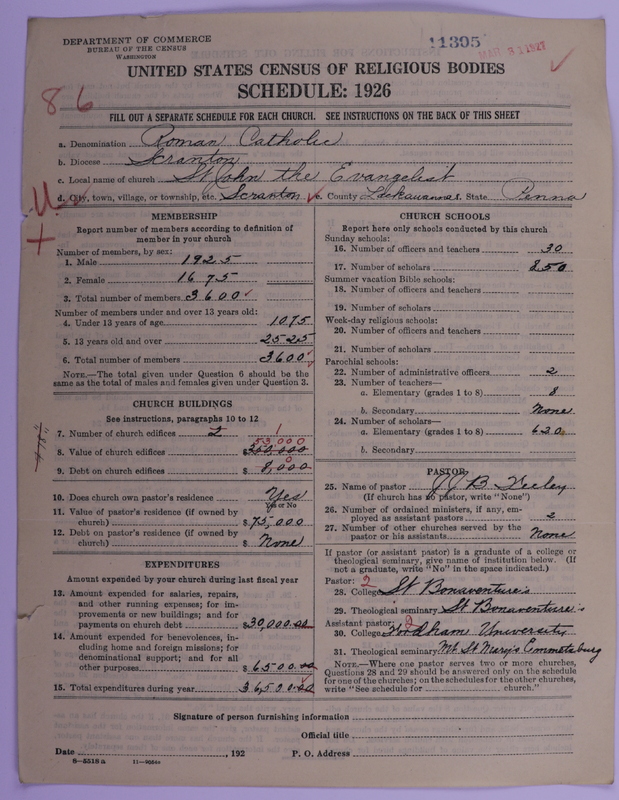 DEPARTMENT OF COMMERCE
BUREAU OF THE CENSUS
WASHINGTON
11395
MAR 31 1927
UNITED STATES CENSUS OF RELIGIOUS BODIES
SCHEDULE: 1926
86
FILL OUT A SEPARATE SCHEDULE FOR EACH CHURCH. SEE INSTRUCTIONS ON THE BACK OF THIS SHEET
a. Denomination Roman Catholic
b. Diocese Scranton
c. Local name of church St John the Evangelist
d. City, town, village, or township, etc. Scranton e. County Lackawanna State Penna
MEMBERSHIP
Report number of members according to definition of
member in your church
Number of members, by sex:
1. Male 1925
2. Female 1675
3. Total number of members 3600
Number of members under and over 13 years old:
4. Under 13 years of age 1075
5. 13 years old and over 2525
6. Total number of members 3600
NOTE.—The total given under Question 6 should be the
same as the total of males and females given under Question 3.
CHURCH BUILDINGS
See instructions, paragraphs 10 to 12
7. Number of church edifices 2 1
53,000
8. Value of church edifices $350,000
0
9. Debt on church edifices $ 8,000
10. Does church own pastor's residence Yes
Yes or No
11. Value of pastor's residence (if owned by
church) $75,000
12. Debt on pastor's residence (if owned by
church) $ None
EXPENDITURES
Amount expended by your church during last fiscal year
13. Amount expended for salaries, repairs,
and other running expenses; for im-
provements or new buildings; and for
payments on church debt $30,000.00
14. Amount expended for benevolences, in-
cluding home and foreign missions; for
denominational support; and for all
other purposes $6500.00
15. Total expenditures during year 36,500.00
CHURCH SCHOOLS
Report here only schools conducted by this church
Sunday schools:
16. Number of officers and teachers 30
17. Number of scholars 850
Summer vacation Bible schools:
18. Number of officers and teachers
19. Number of scholars
Week-day religious schools:
20. Number of officers and teachers
21. Number of scholars
Parochial schools:
22. Number of administrative officers 2
23. Number of teachers—
a. Elementary (grades 1 to 8) 8
b. Secondary None
24. Number of scholars—
a. Elementary (grades 1 to 8) 620
b. Secondary
PASTOR
25. Name of pastor J J B Feeley
(If church has no pastor, write "None")
26. Number of ordained ministers, if any, em-
ployed as assistant pastors 2
27. Number of other churches served by the
pastor or his assistants None
If pastor (or assistant pastor) is a graduate of a college or
theological seminary, give name of institution below. (If
not a graduate, write "No" in the space indicated.)
Pastor: 2
28. College St Bonaventure's
29. Theological seminary St Bonaventure's
Assistant pastor: 2
30. College Fordham University
31. Theological seminary Mt St Mary's Emmetsburg
NOTE.—Where one pastor serves two or more churches,
Questions 28 and 29 should be answered only on the schedule
for one of the churches; on the schedules for the other churches,
write "See schedule for church."
Signature of person furnishing information
Official title
Date , 192 P. O. Address
8-5518a 11-9664a